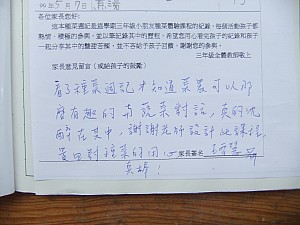 99年5月7日
各位家長您好:
這本種菜週記是這學期三年級小朋友種菜體驗課程的紀錄,每個活動孩子都熱情、積極的參與,並以筆記錄其中的歷程,希望您用心看完孩子的紀錄和孩子一起分享其中的豐盛苦辣,並不吝給予孩子回饋,謝謝您的參與。
三年級全體教師敬上
家長意見留言(或給孩子的鼓勵)
看了種菜週記才知道菜農可以那
麼有趣的和蔬菜對話,真的沈
醉在其中,謝謝老師設計此課程
貴田對種菜的用心 家長簽名
真棒!